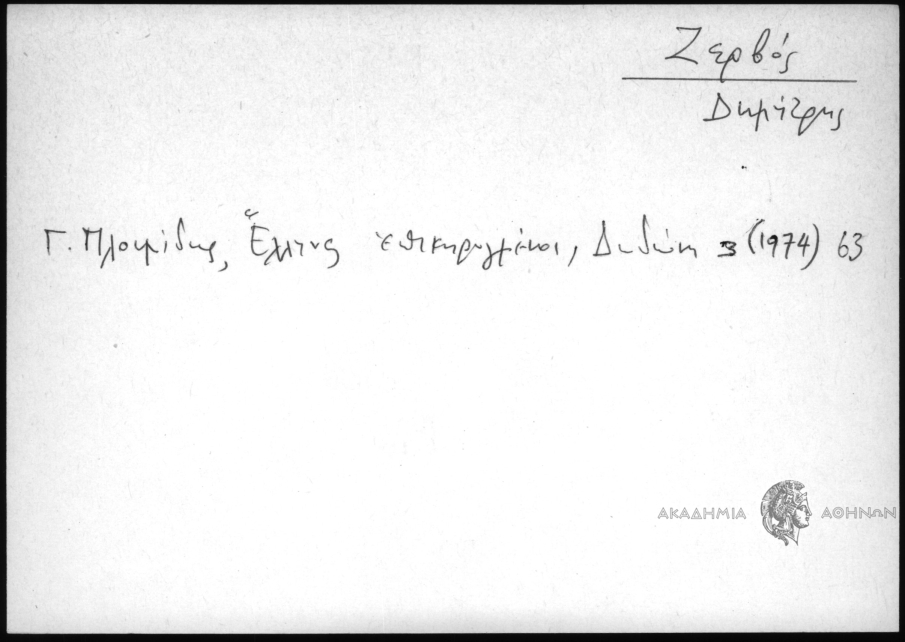 Ζερβός
Δημήτρης
Γ. Πλουμίδης, Ἕλληνες ἐπικηρυγμένοι, Δωδώνη 3 (1974) 63
ΑΚΑΔΗΜΙΑ ΑΘΗΝΩΝ